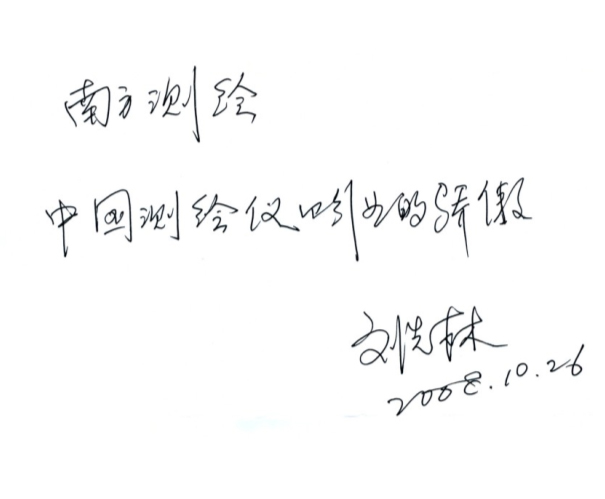 南方测绘
中国测绘仪器业的骄傲
刘先林
2008.10.26